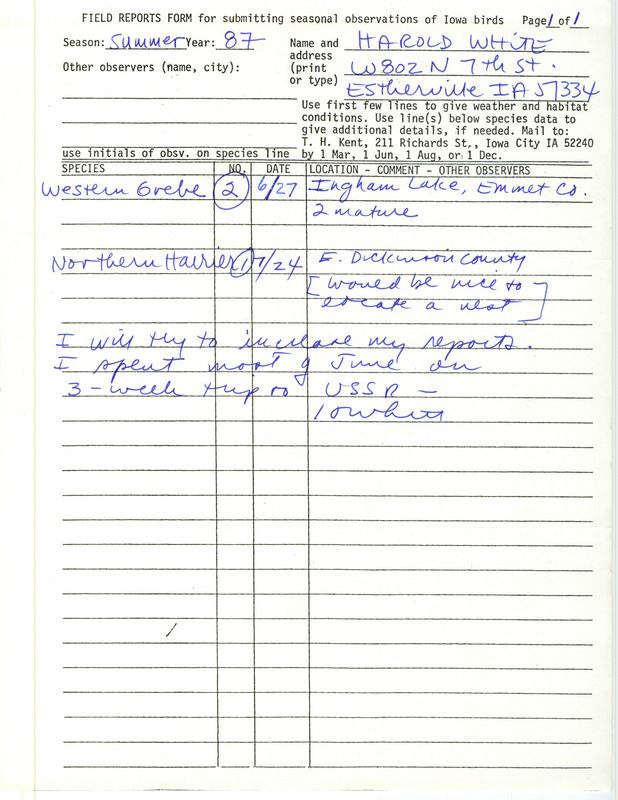 FIELD REPORTS FORM for submitting seasonal observations of Iowa birds Page 1 of 1
Season: Summer Year: 87 Name and HAROLD WHITE
address
Other observers (name, city): (print W 802 N 7th St.
or type) Estherville IA 57334
Use first few lines to give weather and habitat
conditions. Use line(s) below species data to
give additional details, if needed. Mail to:
T. H. Kent, 211 Richards St., Iowa City IA 52240
use initials of obsv. on species line by 1 Mar, 1 Jun, 1 Aug, or 1 Dec.
SPECIES NO. DATE LOCATION - COMMENT - OTHER OBSERVERS
Western Grebe 2 6/27 Ingham Lake, Emmet Co.
2 mature
Northern Harrier (1) 7/24 E. Dickinson County
[would be nice to
locate a nest]
I will try to increase my reports.
I spent most of June on
3-week trip to USSR -